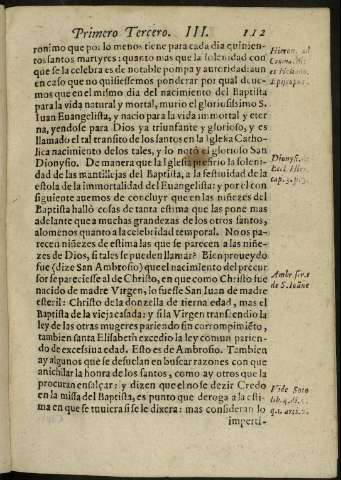 Primero Tercero. III. 112
ronimo que por lo menos tiene para cada dia quinien-
tos santos martyres: quanto mas que la solenidad con
que se la celebra es de notable pompa y autoridad: aun
en caso que no quisiessemos ponderar por qual deue-
mos que en el mismo dia del nacimiento del Baptista
para la vida natural y mortal, murio el gloriosissimo S.
Iuan Euangelista, y nacio para la vida immortal y eter
na, yendose para Dios ya triunfante y glorioso, y es
llamado el tal transito de los santos en la Iglesia Catho-
lica nacimiento de los tales, y lo notò el glorioso San
Dionysio. De manera que la Iglesia prefirio la soleni-
dad de las mantillejas del Baptista, a la festiuidad de la
estola de la immortalidad del Euangelista: y por el con
siguiente auemos de concluyr que en las niñezes del
Baptista hallò cosas de tanta estima que las pone mas
adelante que a muchas grandezas de los otros santos,
alomenos quanto a la celebridad temporal. No os pa-
recen niñezes de estima las que se parecen a las niñe-
zes de Dios, si tales se pueden llamar? Bien proueydo
fue (dize San Ambrosio) que el nacimiento del precur
sor se pareciesse al de Christo, en que como Christo fue
nacido de madre Virgen, lo fuesse San Iuan de madre
esteril: Christo de la donzella de tierna edad, mas el
Baptista de la vieja casada: y si la Virgen transcendio la
ley de las otras mugeres pariendo sin corrompimiēto,
tambien santa Elisabeth excedio la ley comun parien-
do de excessiua edad. Esto es de Ambrosio. Tambien
ay algunos que se desuelan en buscar razones con que
anichilar la honra de los santos, como ay otros que la
procuran ensalçar: y dizen que el no se dezir Credo
en la missa del Baptista, es punto que deroga a la esti-
ma en que se tuuiera si se le dixera: mas consideran lo
imperti-
Hieron. ad
Episcopus.
Dionys. de
Eccl. Hier.
cap. 3. p. 3.
Ambr. ser.
de S. Ioāne
Vide Soto
lib. q. di.
q. 1. arti.